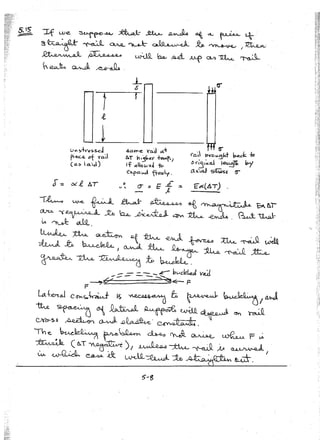 5.15 If we suppose that the ends of a piece of
straight rail are not allowed to move, then
thermal stresses will be set up as the rail
heats and cools
δ
σ
l
σ
unstressed
piece of rail
(as laid)
same rail at
ΔT higher temp.,
if allowed to
expand freely.
rail brought back to
original length by
axial stress σ
δ = αlΔT ∴ σ = E δ/l = Eα(ΔT).
Thus we find that stresses of magnitude EαΔT
are required to be exerted on the ends. But that
is not all.
Under the action of the end forces the rail will
tend to buckle, and the longer the rail the
greater the tendency to buckle.
buckled rail
P P
Lateral constraint is necessary to prevent buckling, and
the spacing of lateral supports will depend on rail
cross section and elastic constants.
The buckling problem does not arise when P is
tensile (ΔT negative), unless the rail is curved,
in which case it will tend to straighten out.
5-8